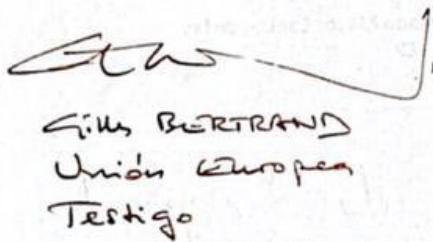 Gilles BERTRAND
Unión Europea
Testigo